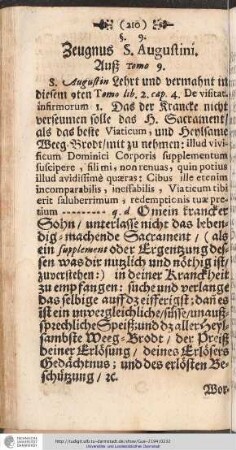 (210)
§. 9.
Zeugnus S. Augustini.
Auß Tomo 9.
S. Augustin Lehrt und vermahnt in
diesem 9ten Tomo lib. 2. cap. 4. De visitat.
infirmorum 1. Das der Krancke nicht
verseumen solle das H. Sacrament/
als das beste Viaticum, und Heylsame
Weeg-Brodt/mit zu nehmen: illud vivi-
ficum Dominici Corporis supplementum
suscipere, fili mi, non renuas, quin potius
illud avidissimè quæras: Cibus ille etenim
incomparabilis, ineffabilis, Viaticum tibi
erit saluberrimum, redemptionis tuæ pre-
tium ---------- q.d O mein krancker
Sohn/ unterlasse nicht das leben-
dig-machende Sacrament/ (als
ein supplement oder Ergentzung des-
sen was dir nutzlich und nöthig ist/
zuverstehen:) in deiner Kranckheit
zu empfangen: suche und verlange
das selbige auff dz eiferigst; dañ es
ist ein unvergleichliche/süsse/unauß-
sprechliche Speiß; und dz aller Heyl-
sambste Weeg-Brodt/ der Preiß
deiner Erlösung/ deines Erlösers
Gedächtnus; und des erlösten Be-
schützung/ ꝛc.
Wor-